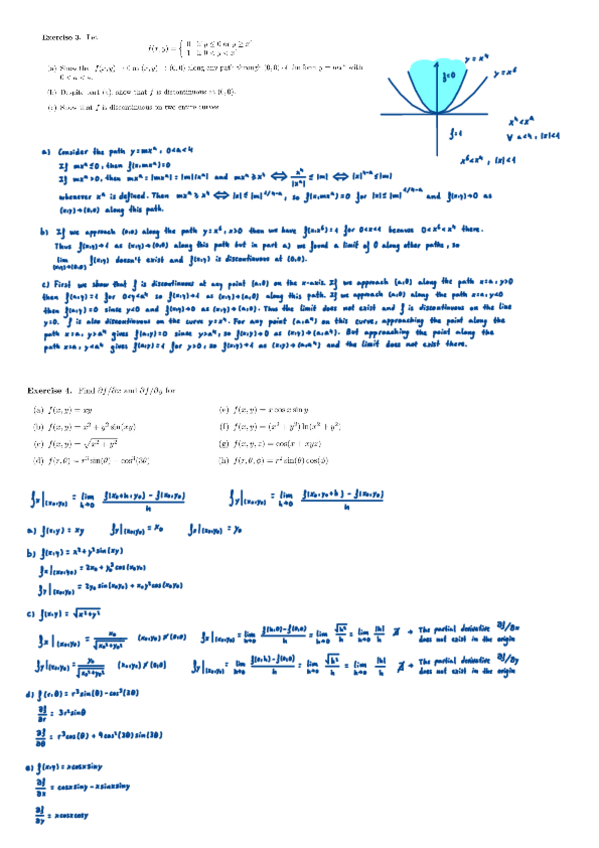 Exercise 3. Let
f(x, y) = { 0 if y ≤ 0 or y ≥ x⁴
1 if 0 < y < x⁴
(a) Show that f(x, y) → 0 as (x, y) → (0, 0) along any path through (0, 0) of the form y = mxᵃ with
0 < a < 4.
(b) Despite part (a), show that f is discontinuous at (0, 0).
(c) Show that f is discontinuous on two entire curves.
y = x⁴
f=0
y = x⁶
f=1
x⁴<xᵃ
∀ a<4, |x|<1
x⁶<x⁴, |x|<1
a) Consider the path y=mxᵃ, 0<a<4
If mxᵃ≤0, then f(x,mxᵃ)=0
If mxᵃ>0, then mxᵃ = |mxᵃ| = |m||xᵃ| and mxᵃ ≥ x⁴ ⟺ x⁴/|xᵃ| ≤ |m| ⟺ |x|⁴⁻ᵃ ≤ |m|
whenever xᵃ is defined. Then mxᵃ ≥ x⁴ ⟺ |x| ≤ |m|^(1/4-a), so f(x,mxᵃ)=0 for |x| ≤ |m|^(1/4-a) and f(x,y)→0 as
(x,y)→(0,0) along this path.
b) If we approach (0,0) along the path y=x⁶, x>0 then we have f(x,x⁶)=1 for 0<x<1 because 0<x⁶<x⁴ there.
Thus f(x,y)→1 as (x,y)→(0,0) along this path but in part a) we found a limit of 0 along other paths, so
lim (x,y)→(0,0) f(x,y) doesn't exist and f(x,y) is discontinuous at (0,0).
c) First we show that f is discontinuous at any point (a,0) on the x-axis. If we approach (a,0) along the path x=a, y>0
then f(a,y)=1 for 0<y<a⁴ so f(x,y)→1 as (x,y)→(a,0) along this path. If we approach (a,0) along the path x=a, y<0
then f(a,y)=0 since y<0 and f(x,y)→0 as (x,y)→(a,0). Thus the limit does not exist and f is discontinuous on the line
y=0. f is also discontinuous on the curve y=x⁴. For any point (a,a⁴) on this curve, approaching the point along the
path x=a, y>a⁴ gives f(a,y)=0 since y>a⁴, so f(x,y)→0 as (x,y)→(a,a⁴). But approaching the point along the
path x=a, y<a⁴ gives f(a,y)=1 for y>0, so f(x,y)→1 as (x,y)→(a,a⁴) and the limit does not exist there.
Exercise 4. Find ∂f/∂x and ∂f/∂y for
(a) f(x, y) = xy
(b) f(x, y) = x² + y² sin(xy)
(c) f(x, y) = √(x² + y²)
(d) f(r, θ) = r³ sin(θ) − cos³(3θ)
(e) f(x, y) = x cos x sin y
(f) f(x, y) = (x² + y²) ln(x² + y²)
(g) f(x, y, z) = cos(x + xyz)
(h) f(r, θ, φ) = r² sin(θ) cos(φ)
fx|(x₀,y₀) = lim h→0 (f(x₀+h,y₀) − f(x₀,y₀))/h fy|(x₀,y₀) = lim h→0 (f(x₀,y₀+h) − f(x₀,y₀))/h
a) f(x,y) = xy fy|(x₀,y₀) = x₀ fx|(x₀,y₀) = y₀
b) f(x,y) = x²+y²sin(xy)
fx|(x₀,y₀) = 2x₀ + y₀³cos(x₀y₀)
fy|(x₀,y₀) = 2y₀ sin(x₀y₀) + x₀y₀²cos(x₀y₀)
c) f(x,y) = √(x²+y²)
fx|(x₀,y₀) = x₀/√(x₀²+y₀²) (x₀,y₀)≠(0,0) fx|(x₀,y₀) = lim h→0 (f(h,0)−f(0,0))/h = lim h→0 √h²/h = lim h→0 |h|/h ∄ → The partial derivative ∂f/∂x does not exist in the origin
fy|(x₀,y₀) = y₀/√(x₀²+y₀²) (x₀,y₀)≠(0,0) fy|(x₀,y₀) = lim h→0 (f(0,h)−f(0,0))/h = lim h→0 √h²/h = lim h→0 |h|/h ∄ → The partial derivative ∂f/∂y does not exist in the origin
d) f(r,θ) = r³sin(θ) − cos³(3θ)
∂f/∂r = 3r²sinθ
∂f/∂θ = r³cos(θ) + 9cos²(3θ)sin(3θ)
e) f(x,y) = xcosxsiny
∂f/∂x = cosxsiny − xsinxsiny
∂f/∂y = xcosxcosy